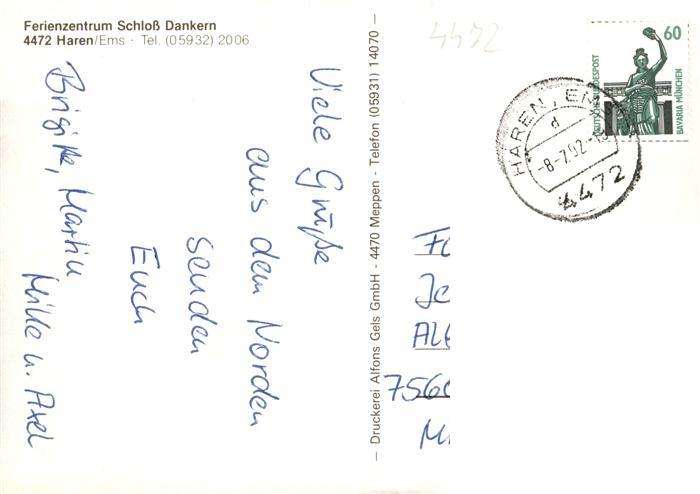 Ferienzentrum Schloß Dankern
4472 Haren/Ems · Tel. (05932) 2006
Viele Grüße
aus dem Norden
senden
Euch
Brigitte, Martin
Milke u. Axel
— Druckerei Alfons Gels GmbH - 4470 Meppen - Telefon (05931) 14070 —
4472
60
DEUTSCHE BUNDESPOST
BAVARIA MÜNCHEN
HAREN, EM
d
-8-7.92-
4472
Al
756
M